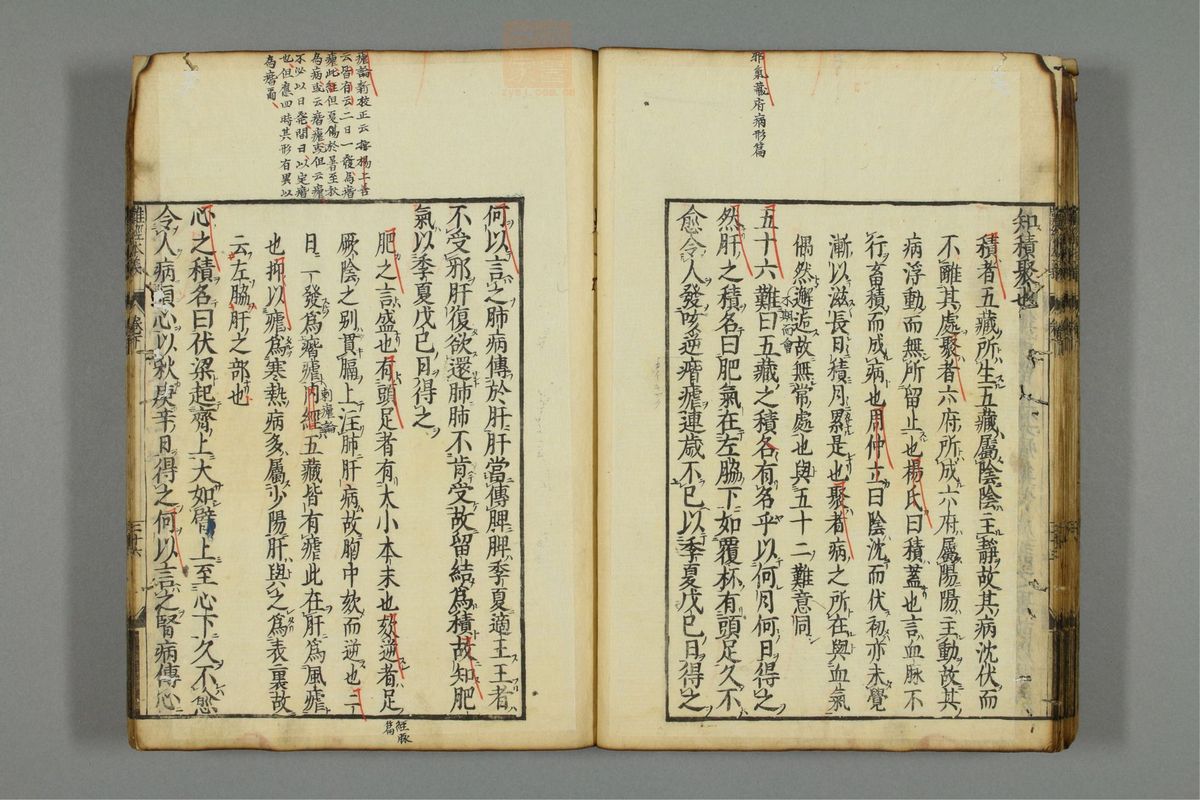 邪氣藏府病形篇
知積聚也
積者五藏所生五藏屬陰陰主靜故其病沈伏而
不離其處聚者六府所成六府屬陽陽主動故其
病浮動而無所留止也楊氏曰積蓄也言血脉不
行畜積而成病也周仲立曰陰沈而伏初亦未覺
漸以滋長日積月累是也聚者病之所在與血氣
偶然邂逅故無常處也與五十二難意同
不期而會
五十六難曰五藏之積各有名乎以何月何日得之
然肝之積名曰肥氣在左脇下如覆杯有頭足久不
愈令人發咳逆㾬瘧連歲不已以季夏戊巳日得之
瘧論新校正云按楊上善
云皆有云二日一發爲㾬
瘧此經但夏傷於暑至秋
爲病或云㾬瘧或但云瘧
不必以日發間日以定㾬
也但應四時其形有異以
爲㾬爾
何以言之肺病傳於肝肝當傳脾脾季夏適王王者
不受邪肝復欲還肺肺不肯受故留結爲積故知肥
氣以季夏戊巳日得之
肥之言盛也有頭足者有大小本末也咳逆者足
厥陰之别貫膈上注肺肝病故胸中咳而逆也二
經脉篇
日一發爲㾬瘧内經五藏皆有瘧此在肝爲風瘧
刺瘧論
也抑以瘧爲寒熱病多屬少陽肝與之爲表裏故
云左脇肝之部也
心之積名曰伏梁起齊上大如臂上至心下久不愈
令人病煩心以秋庚辛日得之何以言之腎病傳心